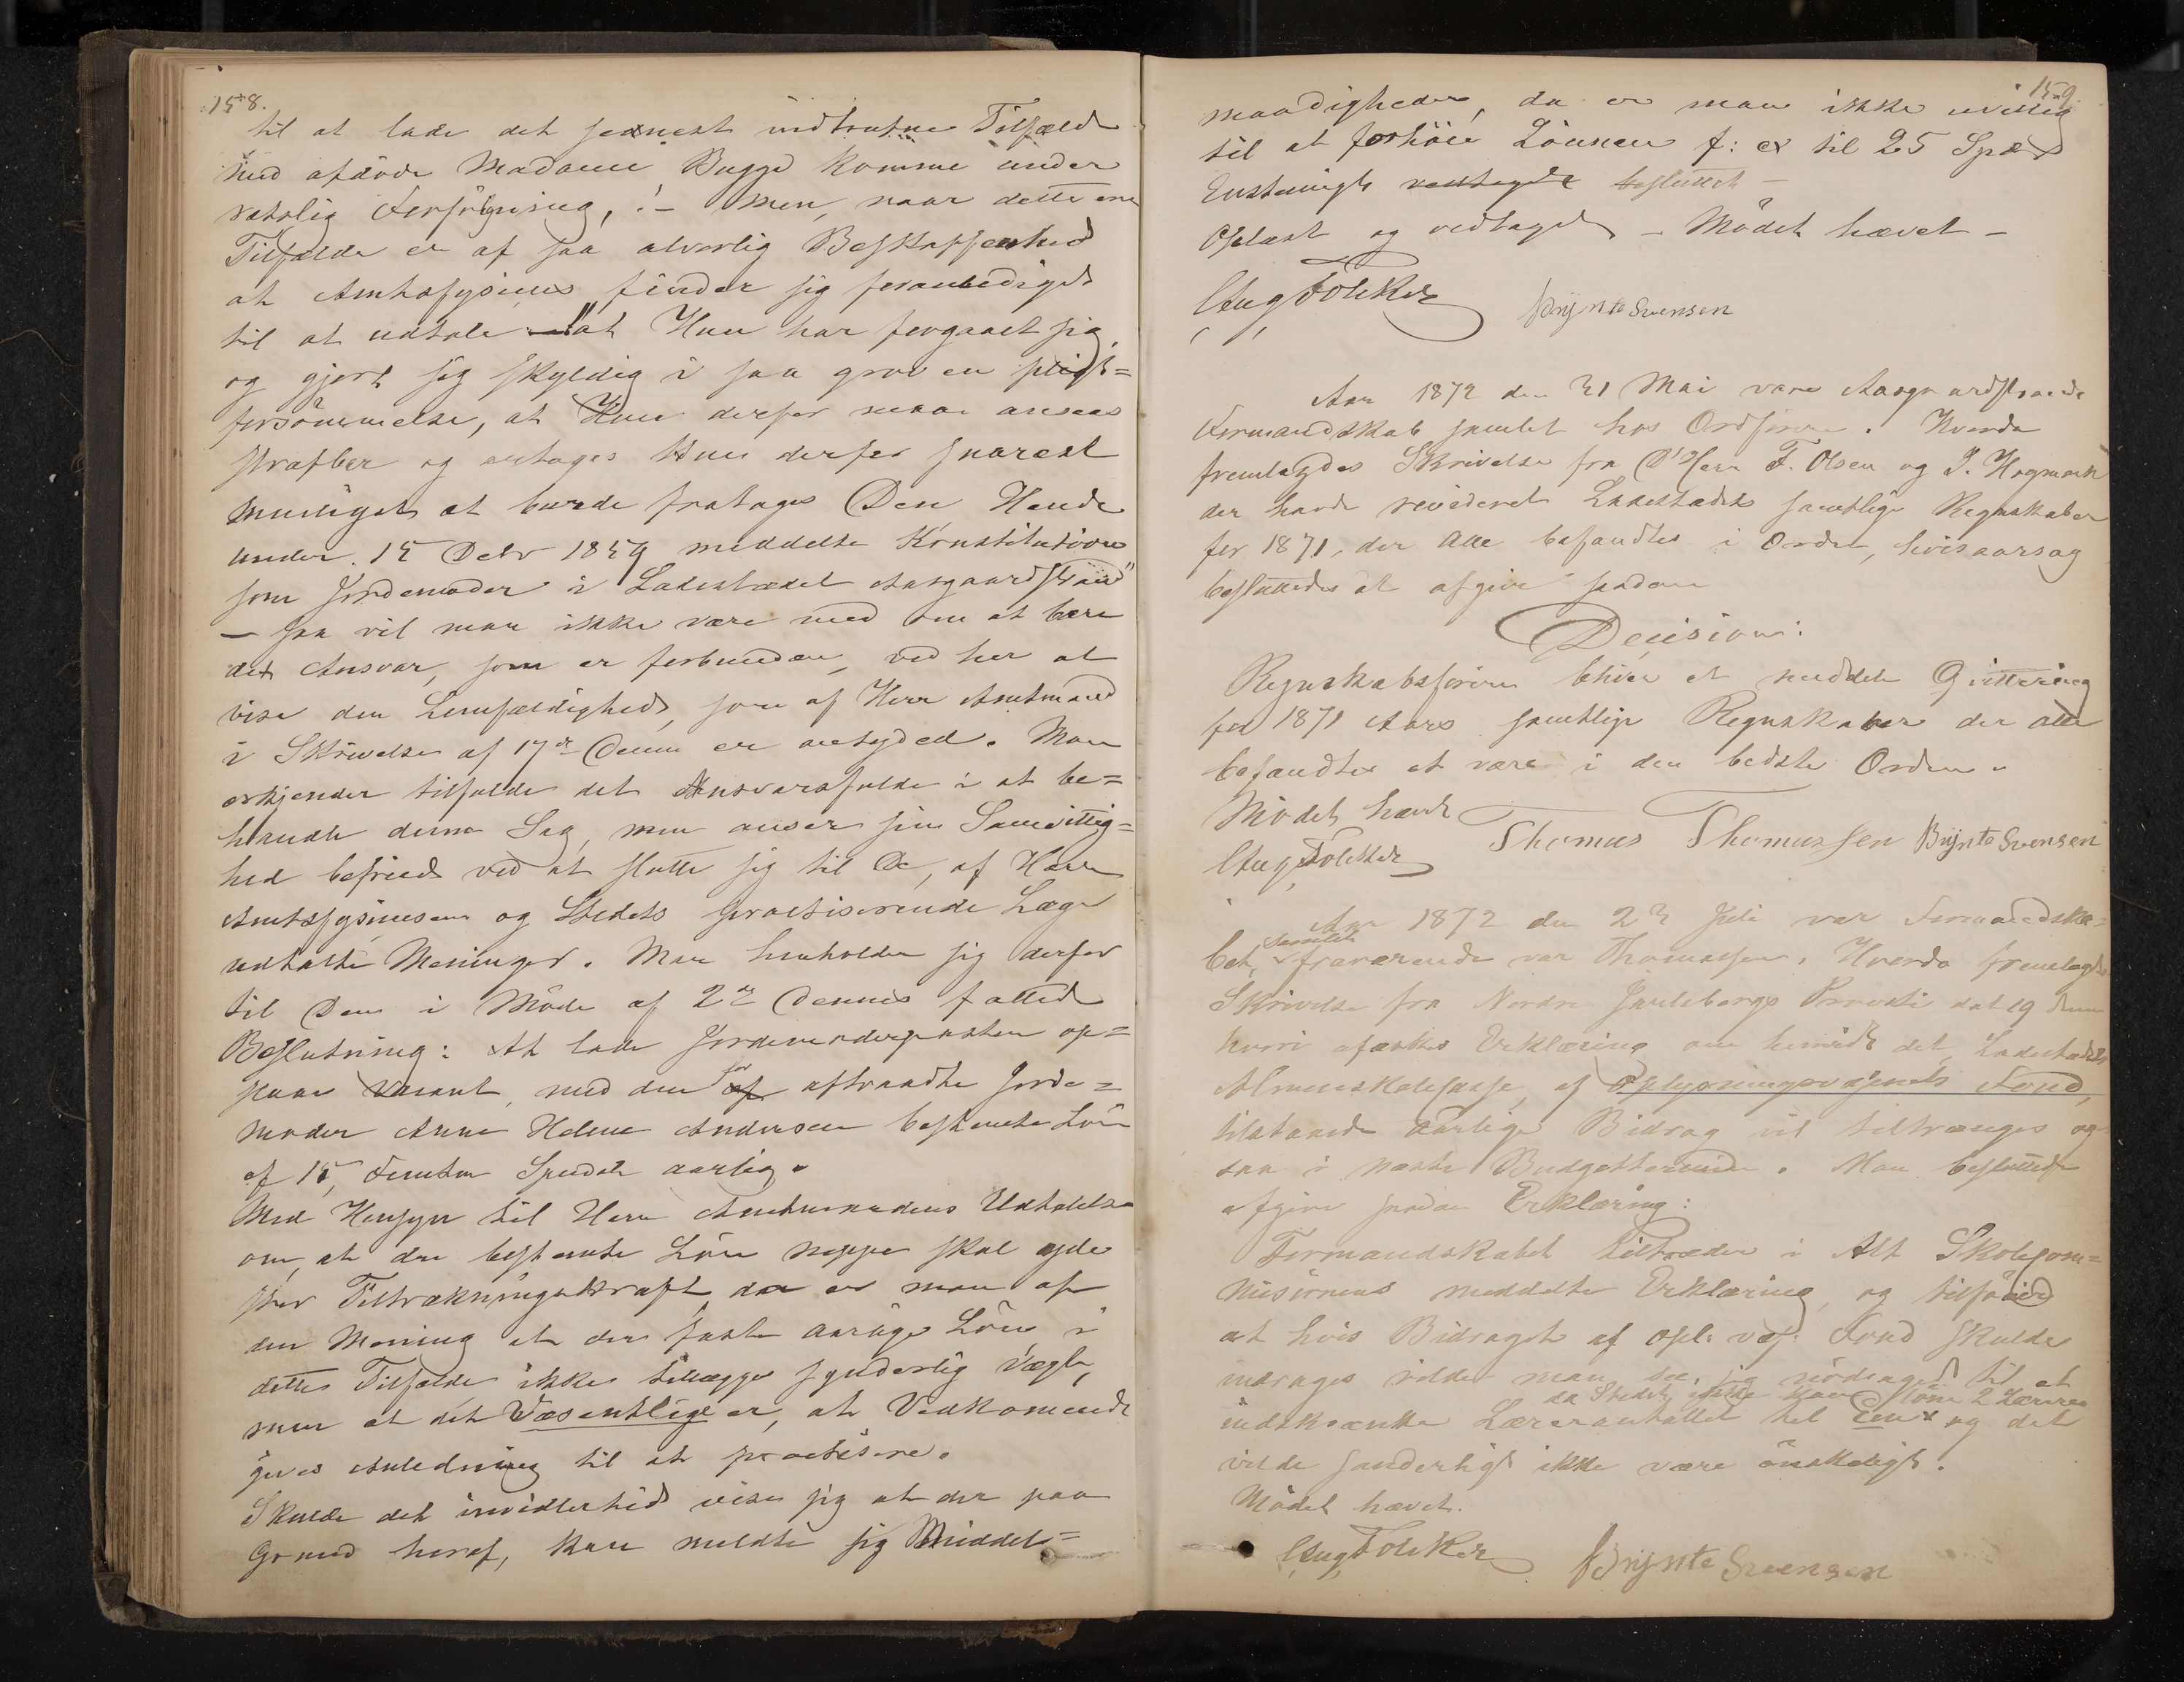 158.
til at lade det senest indtrufne Tilfælde
med afdøde Madame Bugge komme under
retslig Forføining, !- men, naar dette ene
Tilfælde er af saa alvorlig Beskaffenhed
at Amtsfysicus finder sig foranlediget
til at udtale "at Hun har forgaaet sig
og gjort sig skyldig i saa grov en pligt=
forsömmelse, at Hun derfor maa ansees
strafbar og antages Hun derfor snarest
muligst at burde fratages Den Hende
under 15 Debr 1859 meddelte Konstitution
som Jordemoder i Ladestedet Aasgaardstrand"
— saa vil man ikke være med om at bære
det Ansvar, som er forbunden, ved her at
vise den Lempældighed, som af Herr Amtmand
i Skrivelse af 17de Dennes er antyded. Man
erkjender tilfulde det Ansvarsfulde i at be=
handle denne Sag, men anser sin Samvittig=
hed befriet ved at slutte sig til De, af Herr
Amtsfysicusen og Stedets practiserende Læge
udtalte Meninger. Man henholder sig derfor
til Den i Møde af 2den Dennes fattede
Beslutning: At lade Jordemoderposten op=
slaaes vacant, med den for aftraadte Jorde=
moder Anne Helene Andersen bestemte Lön
af 15, Femten Specidlr aarlig.
Med Hensyn til Herr Amtmandens Udtalelse
om, at den bestemte Lön neppe skal yde
stor Tiltrækningskraft da er man af
den Mening at den faste aarlige Lön i
dette Tilfælde ikke tillægges synderlig Vægt,
men at det Væsentlige er, at Vedkommende
gives Anledning til at practisere.
Skulde det imidlertid vise sig at der paa
Grund heraf, kun meldte sig Middel=
159
maadigheder, da er man ikke uvillig
til at forhöie Lönnen f: ex til 25 Spd
Enstemigt vedtaget besluttet —
Oplæst og vedtaget — Mödet hævet —
Aug Fölcker
Brynte Svensen
Aar 1872 den 31 Mai vare Aasgaardstrands
Formandskab samlet hos Ordföreren. Hvorda
fremlagdes Skrivelse fra D'Herr F. Olsen og J. Hagmark
der havde revideret Ladestedets samtlige Regnskaber
for 1871, der Alle befandtes i Orden, hvisaarsag
besluttedes at afgive saadan
Decision:
Regnskabsföreren bliver at meddele Qvittering
for 1871 Aars samtlige Regnskaber der alle
befandtes at være i den bedste Orden.
Mödet hævet
Aug Fölcker
Thomas Thomassen Brynte Svensen
Aar 1872 den 23 Juli var Formandska=
bet, samlet fraværende var Thomassen. Hvorda fremlagdes
Skrivelse fra Nordre Jarlsbergs Provsti dat 19 dennes
hvori afæskes Erklæring om hvorvidt det Ladestedets
Almueskolekasse, af Oplysningsvæsenets Fond,
tilstaaede aarlige Bidrag vil tiltrænges og
saa i næste Budgettermin. Man besluttede
afgive saadan Erklæring:
Formandskabet tiltræder i Alt Skolekom=
missionens meddelte Erklæring, og tilföier
at hvis Bidraget af Opl: væs: Fond skulde
inddrages vilde man see sig nödsaget til at
da Stedet ikke kan lönne 2 Lærere
indskrænke Lærerantallet til een og det
vilde sandeligt ikke være önskeligt.
Mödet hævet.
Aug Fölcker
Brynte Svensen